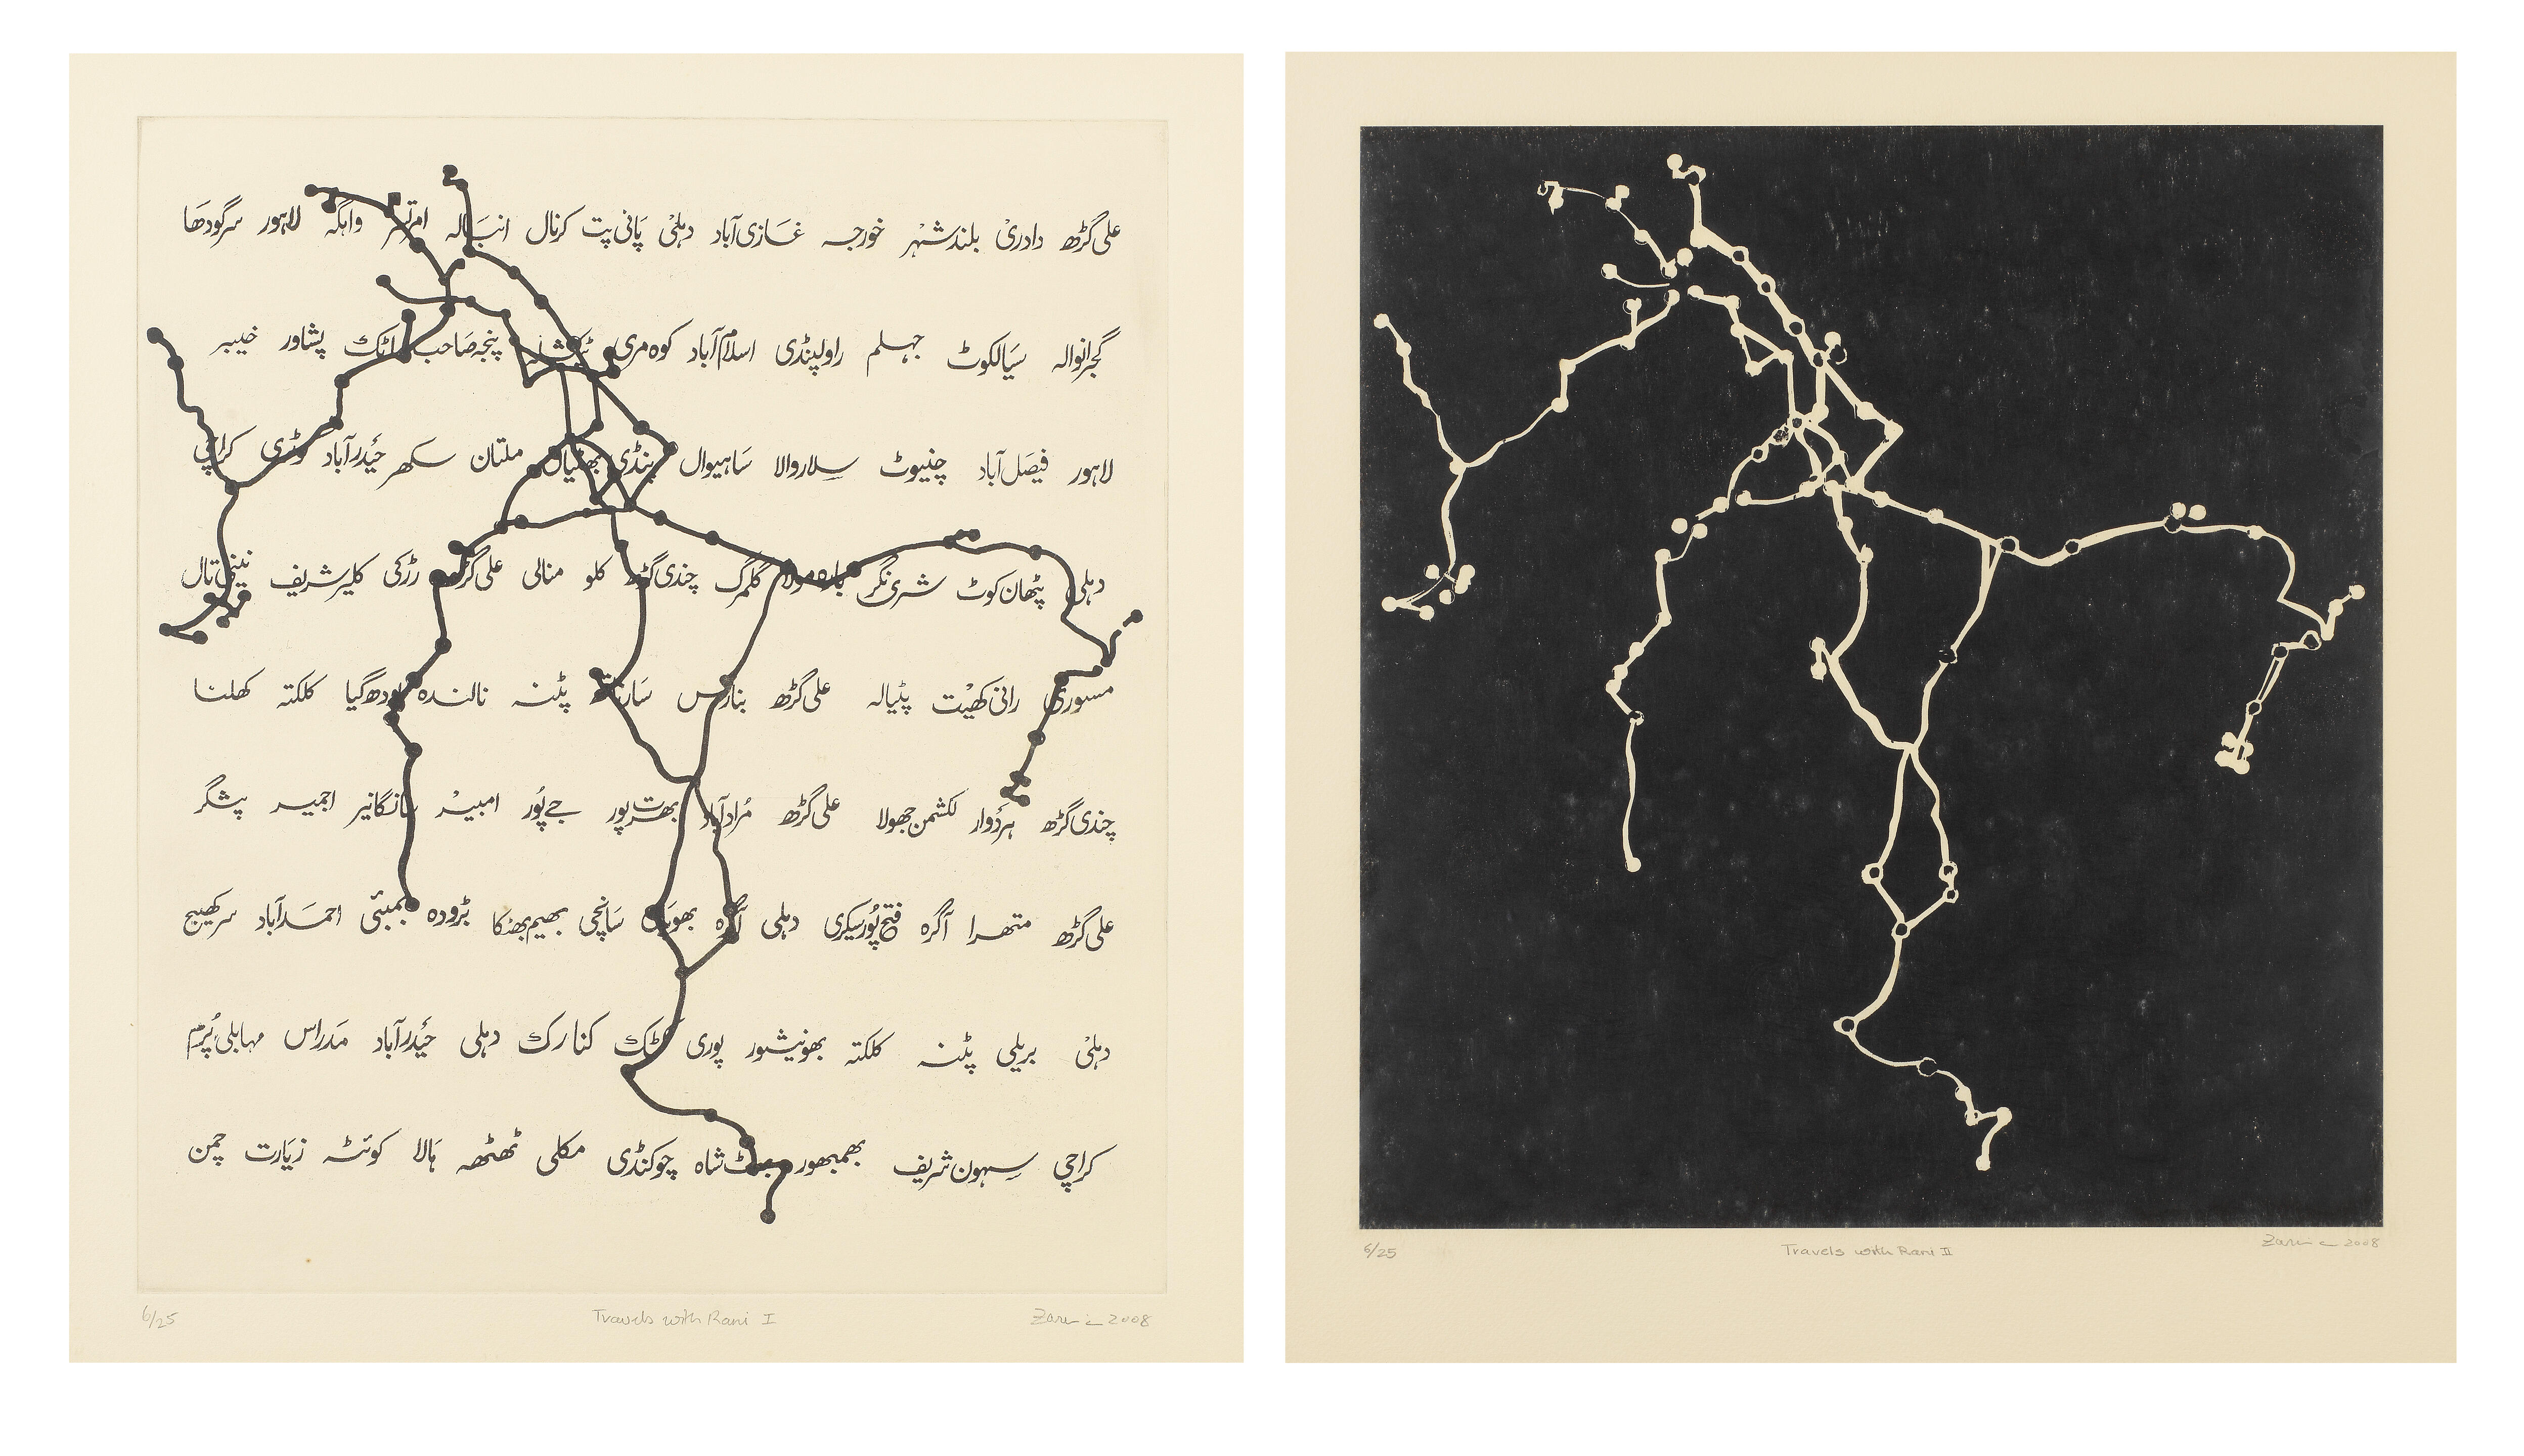 علی گڑھ دادری بلند شہر خورجہ غازی آباد دہلی پانی پت کرنال انبالہ امرتسر واہگہ لاہور سرگودھا
گجرانوالہ سیالکوٹ جہلم راولپنڈی اسلام آباد کوہ مری ٹیکشلہ پنجہ صاحب اٹک پشاور خیبر
لاہور فیصل آباد چنیوٹ سلاروالا ساہیوال پنڈی بھٹیاں ملتان سکھر حیدرآباد کوٹری کراچی
دہلی پٹھان کوٹ شری نگر بارہ مولا گلمرگ چندی گڑھ کلو منالی علی گڑھ رڑکی کلیر شریف نینی تال
مسوری رانی کھیت پٹیالہ علی گڑھ بنارس سارناتھ پٹنہ نالندہ بودھ گیا کلکتہ کھلنا
چندی گڑھ ہردوار لکشمن جھولا علی گڑھ مُرادآباد بھرت پور جے پُور امبیر سانگانیر اجمیر پشگر
علی گڑھ متھرا آگرہ فتح پُور سیکری دہلی آگرہ بھوپال سانچی بھیم بھٹکا بڑودہ بمبئی احمدآباد سرکھیج
دہلی بریلی پٹنہ کلکتہ بھونیشور پوری کٹک کنارک دہلی حیدرآباد مدراس مہابلی پُرم
کراچی سہون شریف بھمبھور بھٹ شاہ چوکنڈی مکلی ٹھٹھہ ہالا کوئٹہ زیارت چمن
6/25 Travels with Rani I Zarina 2008
6/25 Travels with Rani II Zarina 2008